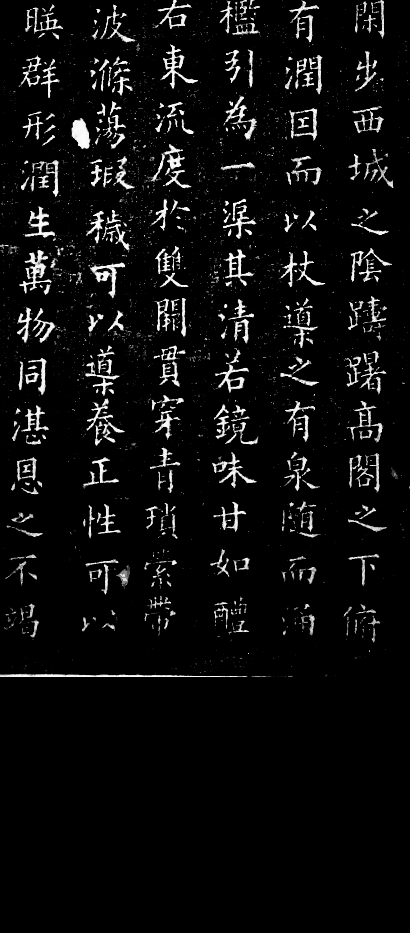 閑步西城之陰躊躇高閣之下俯
有潤因而以杖導之有泉随而涌
檻引為一渠其清若鏡味甘如醴
右東流度於雙闕貫穿青瑣縈帶
波滌蕩瑕穢可以導養正性可以
暎群形潤生萬物同湛恩之不竭